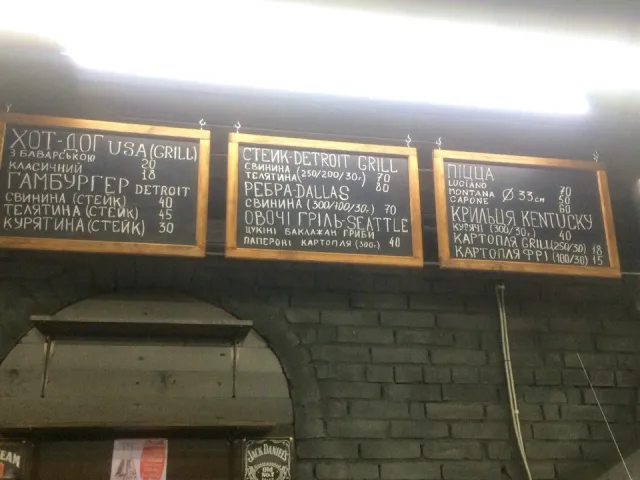 ХОТ-ДОГ USA (GRILL)
З БАВАРСЬКОЮ 20
КЛАСИЧНИЙ 18
ГАМБУРГЕР DETROIT
СВИНИНА (СТЕЙК) 40
ТЕЛЯТИНА (СТЕЙК) 45
КУРЯТИНА (СТЕЙК) 30
СТЕЙК-DETROIT GRILL
СВИНИНА (250/200/30г.) 70
ТЕЛЯТИНА 80
РЕБРА-DALLAS
СВИНИНА (300/100/30г.) 70
ОВОЧІ ГРІЛЬ-SEATTLE
ЦУКІНІ БАКЛАЖАН ГРИБИ
ПАПЕРОНІ КАРТОПЛЯ (300г.) 40
ПІЦЦА
LUCIANO 70
MONTANA Ø 33см 50
CAPONE 60
КРИЛЬЦЯ KENTUCKY
КУРЯЧІ (300/30г.) 40
КАРТОПЛЯ GRILL (250/30) 18
КАРТОПЛЯ ФРІ (100/30) 15
JACK DANIEL'S
OLD
NO.7
EAM